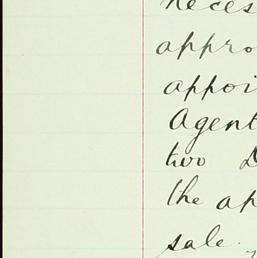 neces
appro
appoi
Agent
two D
the ap
sale.